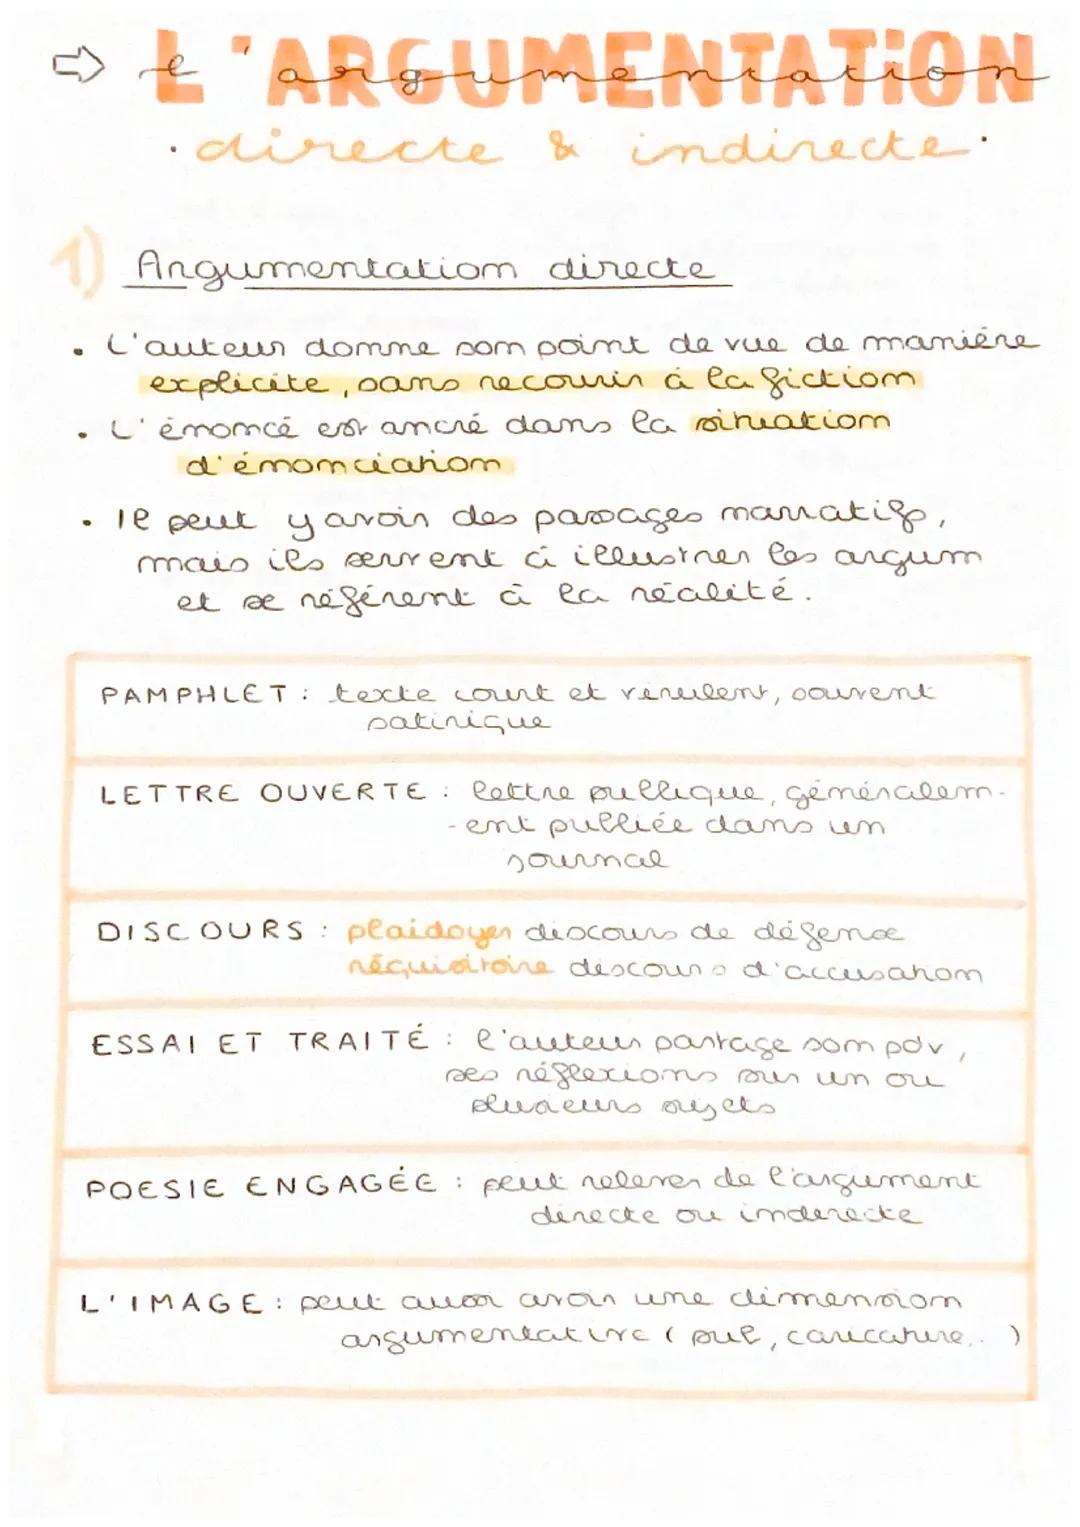 ⇒ L'ARGUMENTATION
l'argumentation
· directe & indirecte ·
1) Argumentation directe
• L'auteur donne son point de vue de manière
explicite, sans recourir à la fiction
• L'énoncé est ancré dans la situation
d'énonciation
• Il peut y avoir des passages narratifs,
mais ils servent à illustrer les argum
et se réfèrent à la réalité.
PAMPHLET : texte court et virulent, souvent
satirique
LETTRE OUVERTE : lettre publique, généralem-
-ent publiée dans un
journal
DISCOURS : plaidoyer discours de défense
réquisitoire descours d'accusation
ESSAI ET TRAITÉ : l'auteur partage som pdv,
ses réflexions sur un ou
plusieurs sujets
POESIE ENGAGÉE : peut relever de l'argument
directe ou inderecte
L'IMAGE : peut aussi avoir une dimension
argumentative ( pub, caricature.. )